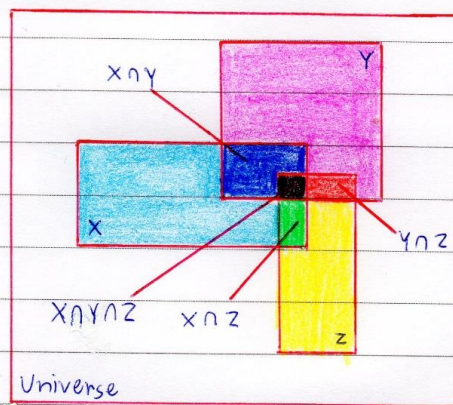 X∩Y
Y
X
Y∩Z
X∩Y∩Z
X∩Z
Z
Universe